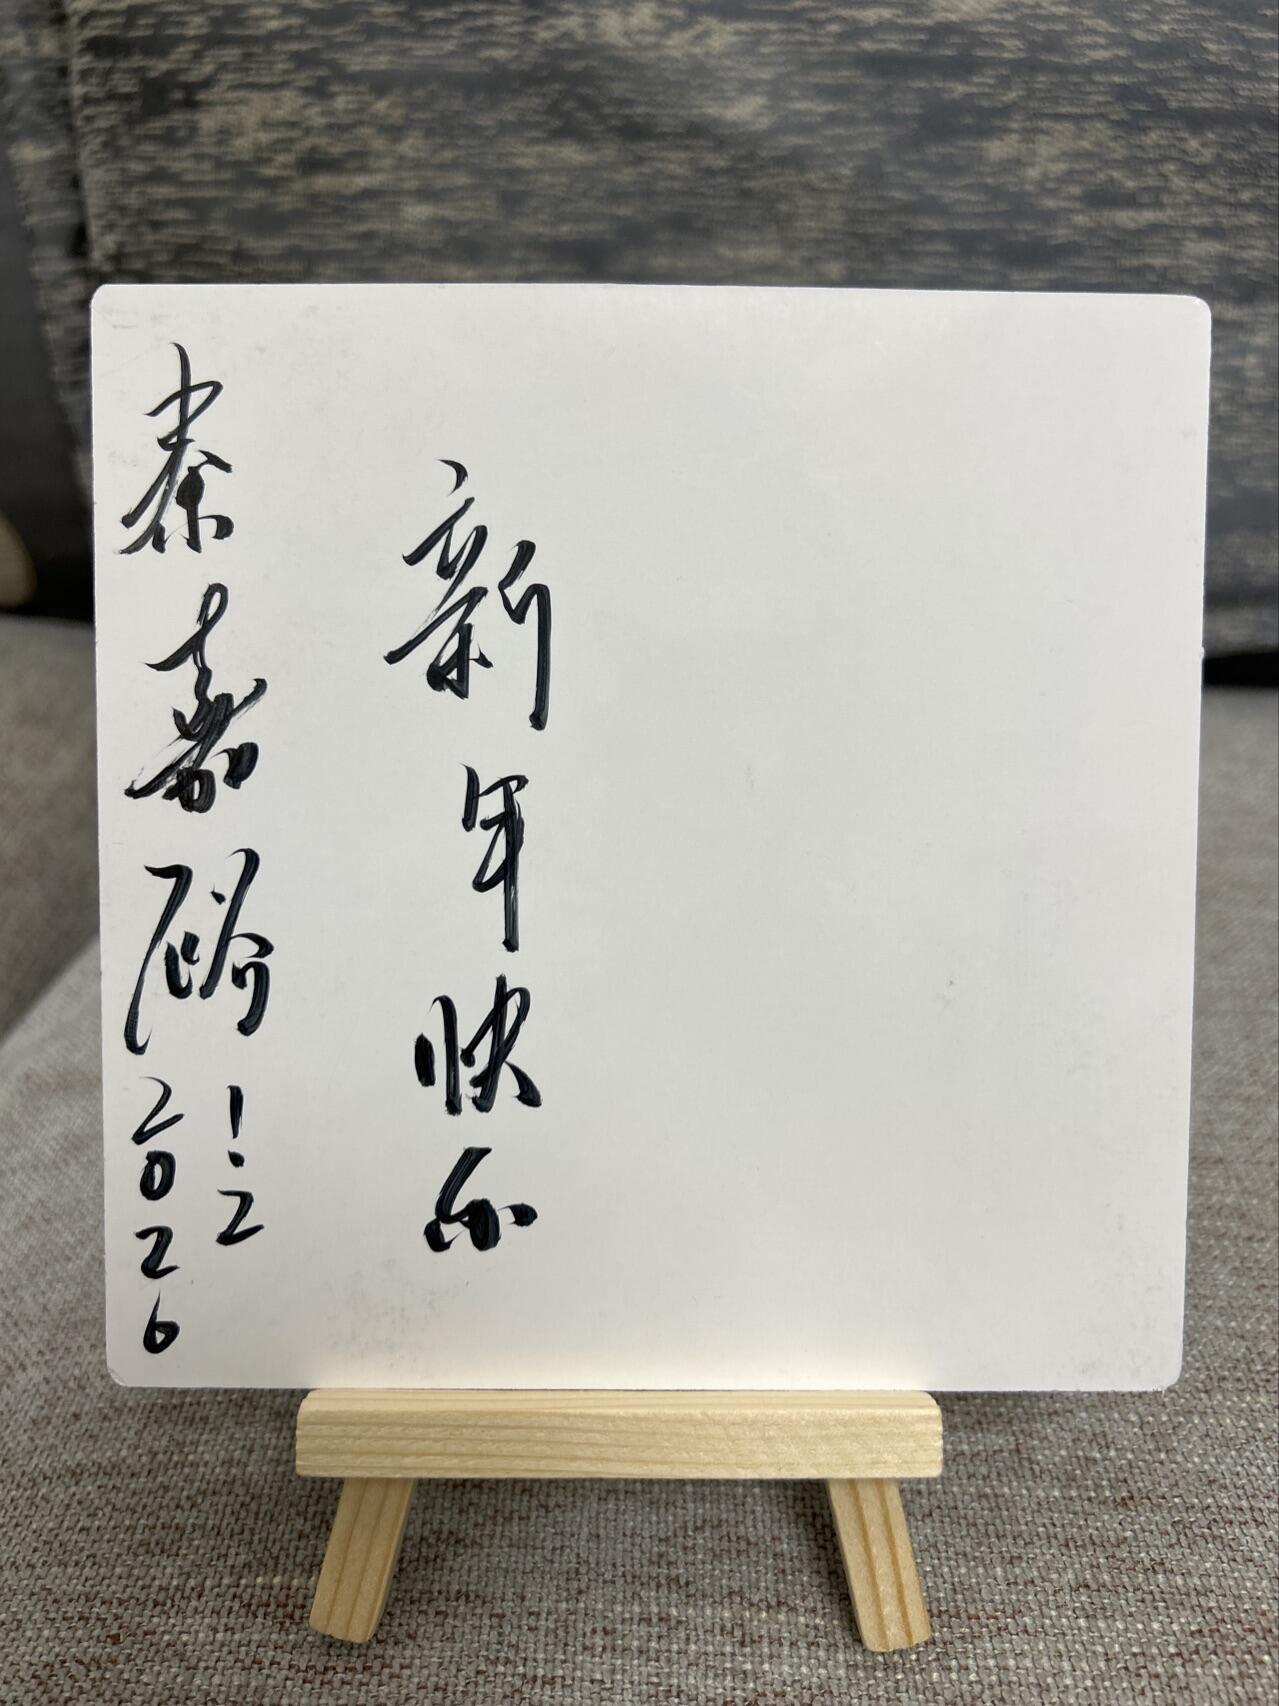 新年快乐
秦嘉
2026
1.2